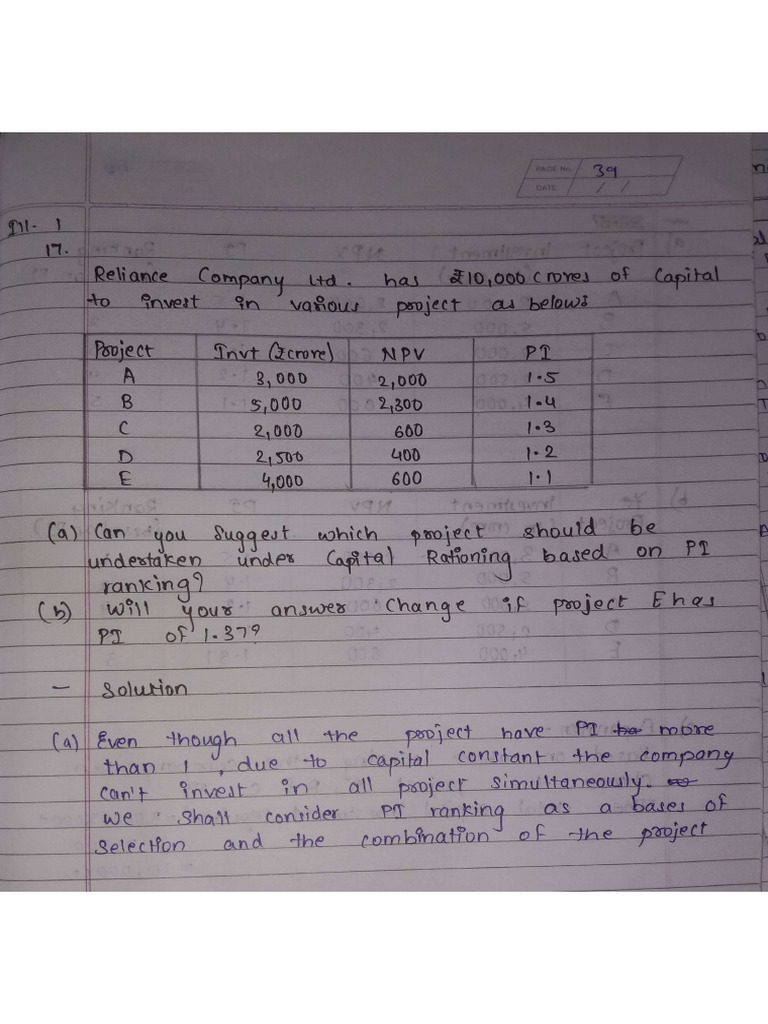 PAGE No. 39
DATE / /
Ill- 1
17.
Reliance Company Ltd. has ₹10,000 Crores of Capital
to invest in various project as below:
Project Invt (₹crore) NPV PI
A 3,000 2,000 1.5
B 5,000 2,300 1.4
C 2,000 600 1.3
D 2,500 400 1.2
E 4,000 600 1.1
(a) Can you suggest which project should be
undertaken under Capital Rationing based on PI
ranking?
(b) Will your answer change if project E has
PI of 1.37?
- Solution
(a) Even though all the project have PI more
than 1, due to capital constant the company
can't invest in all project simultaneously.
We shall consider PI ranking as a bases of
selection and the combination of the project